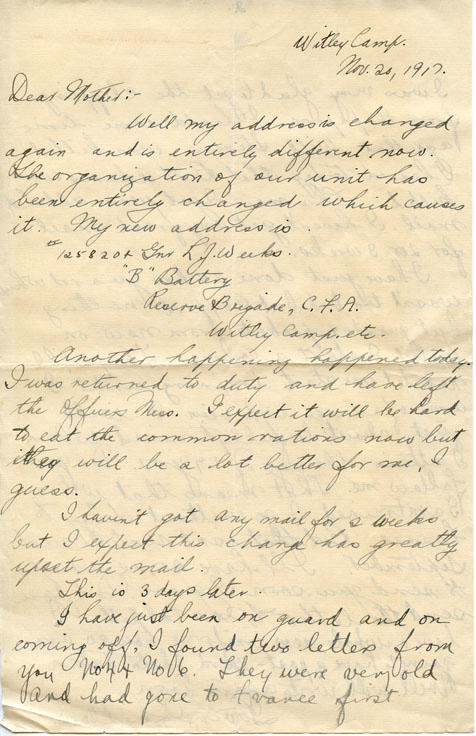 Witley Camp.
Nov. 20, 1917.
Dear Mother:-
Well my address is changed
again and is entirely different now.
The organization of our unit has
been entirely changed which causes
it. My new address is
1258204 Gnr L. J. Weeks.
"B" Battery
Reserve Brigade, C. F. A.
Witley Camp, etc.
Another happening happened today.
I was returned to duty and have left
the Officers Mess. I expect it will be hard
to eat the common rations now but
they will be a lot better for me, I
guess.
I haven't got any mail for 2 weeks
but I expect this chang has greatly
upset the mail.
This is 3 days later.
I have just been on guard and on
coming off, I found two letters from
you No 4 + No 6. They were very old
and had gone to France first